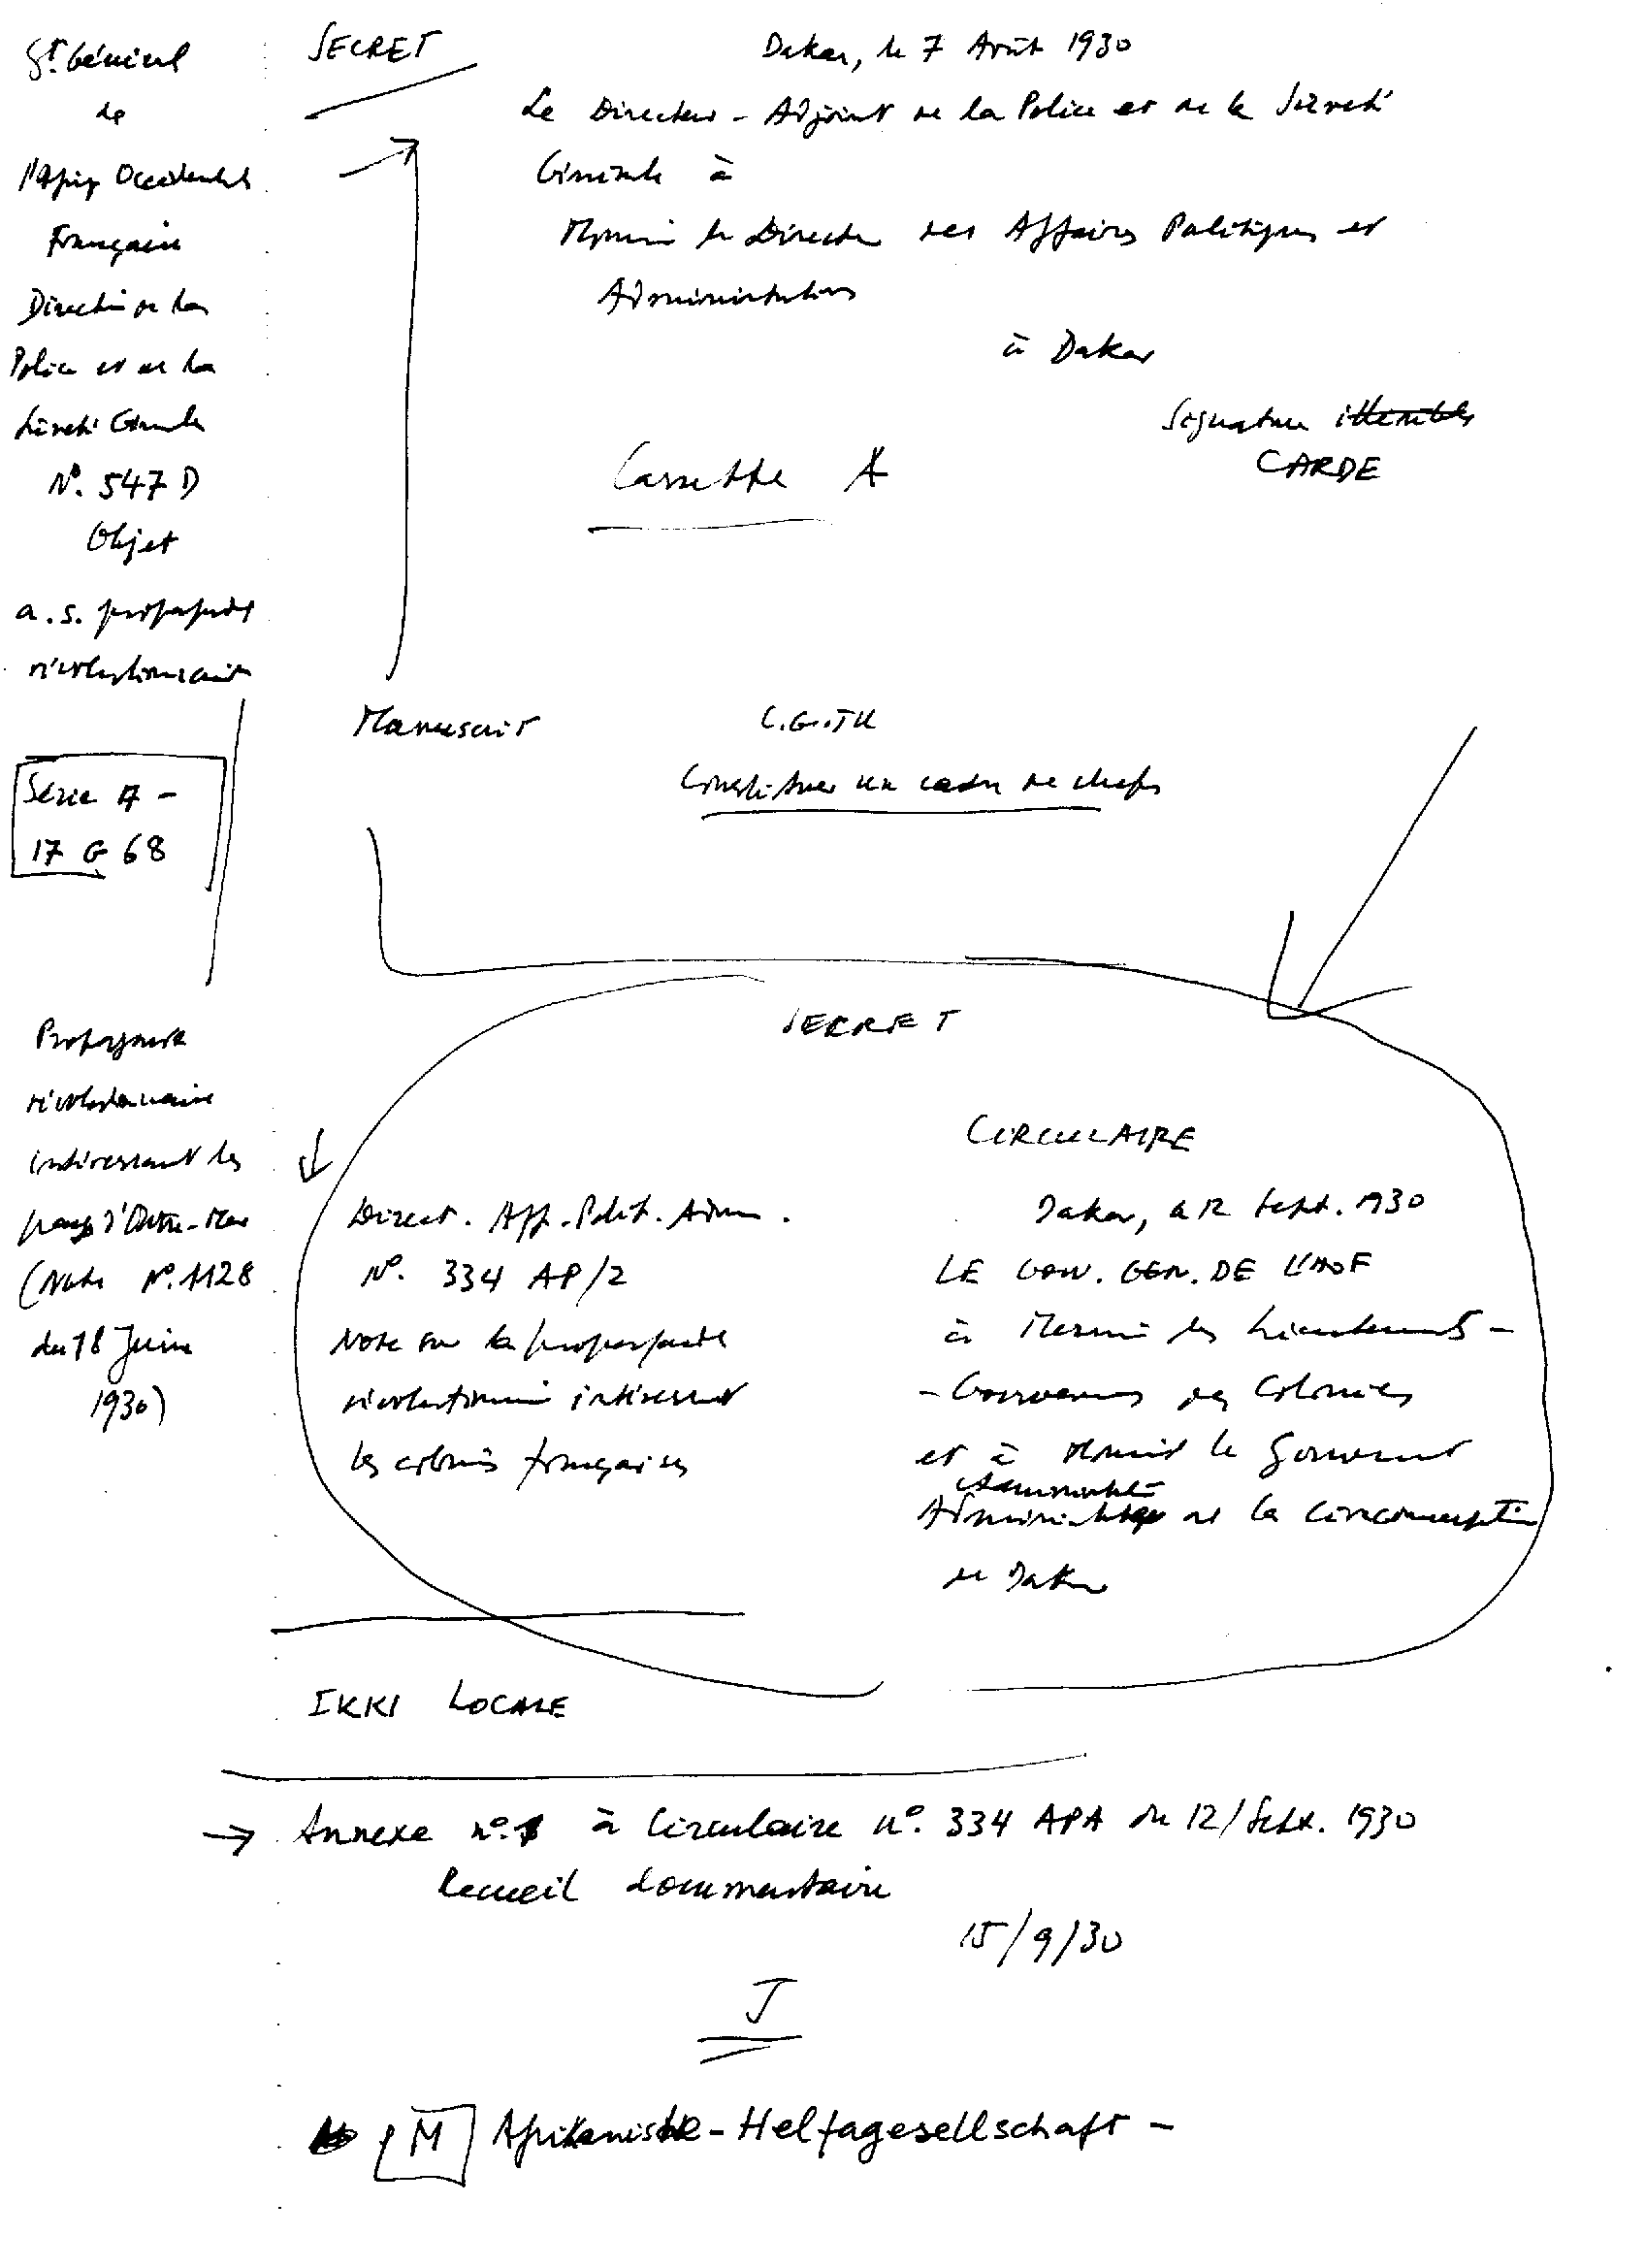 Gt. Général
de
l'Afriq Occidentale
Française
Direction de la
Police et de la
Sûreté Générale
N°. 547 D
Objet
a.s. propagande
révolutionnaire
Série A -
17 G 68
Propagande
révolutionnaire
intéressant les
pays d'Outre-Mer
(Note N°. 1128
du 18 Juin
1930)
SECRET
Dakar, le 7 Août 1930
Le Directeur - Adjoint de la Police et de la Sûreté
Générale à
Monsieur le Directeur des Affaires Politiques et
Administratives
à Dakar
Signature illisible
CARDE
Cassette A
Manuscrit
C.G.T.U
Constituer un cadre de chefs
SECRET
CIRCULAIRE
Direct. Aff. Polit. Adm.
N°. 334 AP/2
Note sur la propagande
révolutionnaire intéressant
les colonies françaises
Dakar, le 12 Sept. 1930
LE GOUV. GEN. DE L'AOF
à Messieurs les Lieutenants -
- Gouverneurs des Colonies
et à Monsieur le Gouverneur
Administrateur de la Circonscription
de Dakar
IKKI LOCALE
→ Annexe n°. 1 à Circulaire n°. 334 APA du 12/Sept. 1930
Recueil documentaire
15/9/30
J
M Afrikanische - Helfagesellschaft -